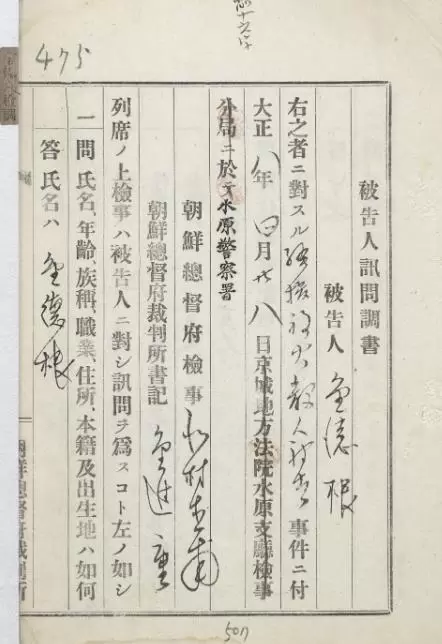 475
被告人訊問調書
被告人 金德根
右之者ニ對スル騷擾放火殺人被告事件ニ付
大正八年四月廿八日京城地方法院水原支廳檢事
分局ニ於テ水原警察署
朝鮮總督府檢事 北村直甫
朝鮮總督府裁判所書記
列席ノ上檢事ハ被告人ニ對シ訊問ヲ爲スコト左ノ如シ
一問 氏名、年齡、族稱、職業、住所、本籍及出生地ハ如何
答 氏名ハ 金德根
朝鮮總督府裁判所
507